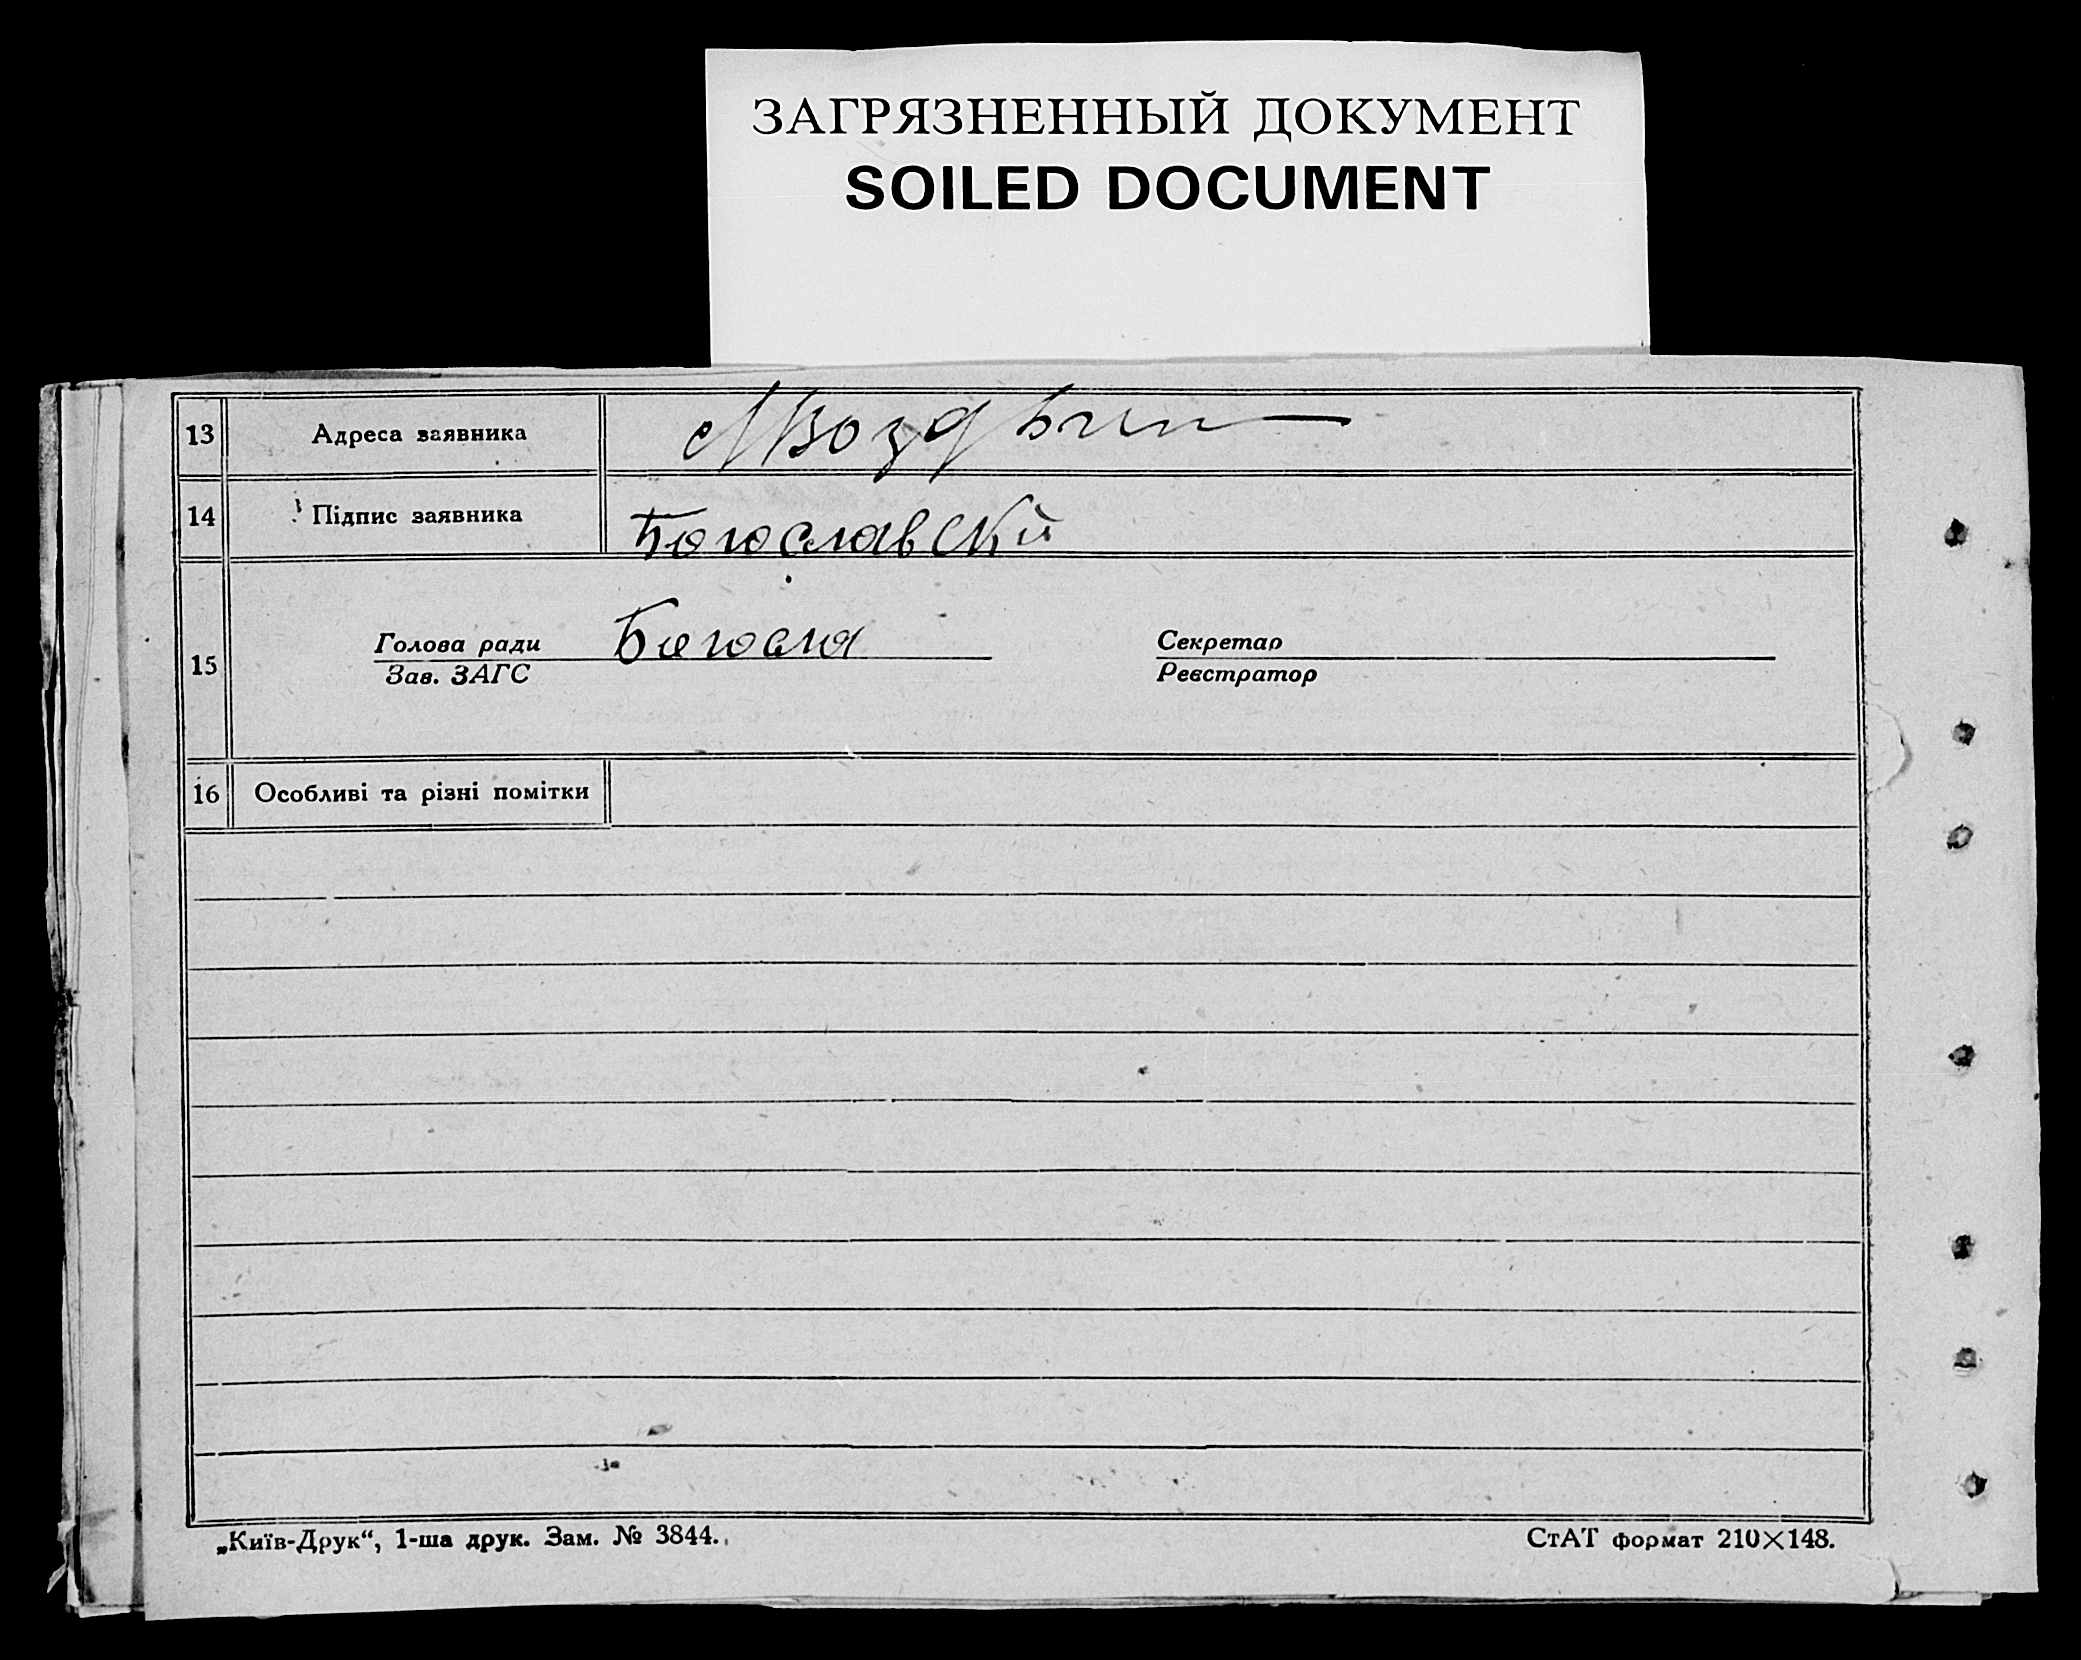 ЗАГРЯЗНЕННЫЙ ДОКУМЕНТ
SOILED DOCUMENT
13 Адреса заявника
14 Підпис заявника Богославский
15 Голова ради Секретар
Зав. ЗАГС Реєстратор
16 Особливі та різні помітки
„Київ-Друк“, 1-ша друк. Зам. № 3844. СтАТ формат 210×148.